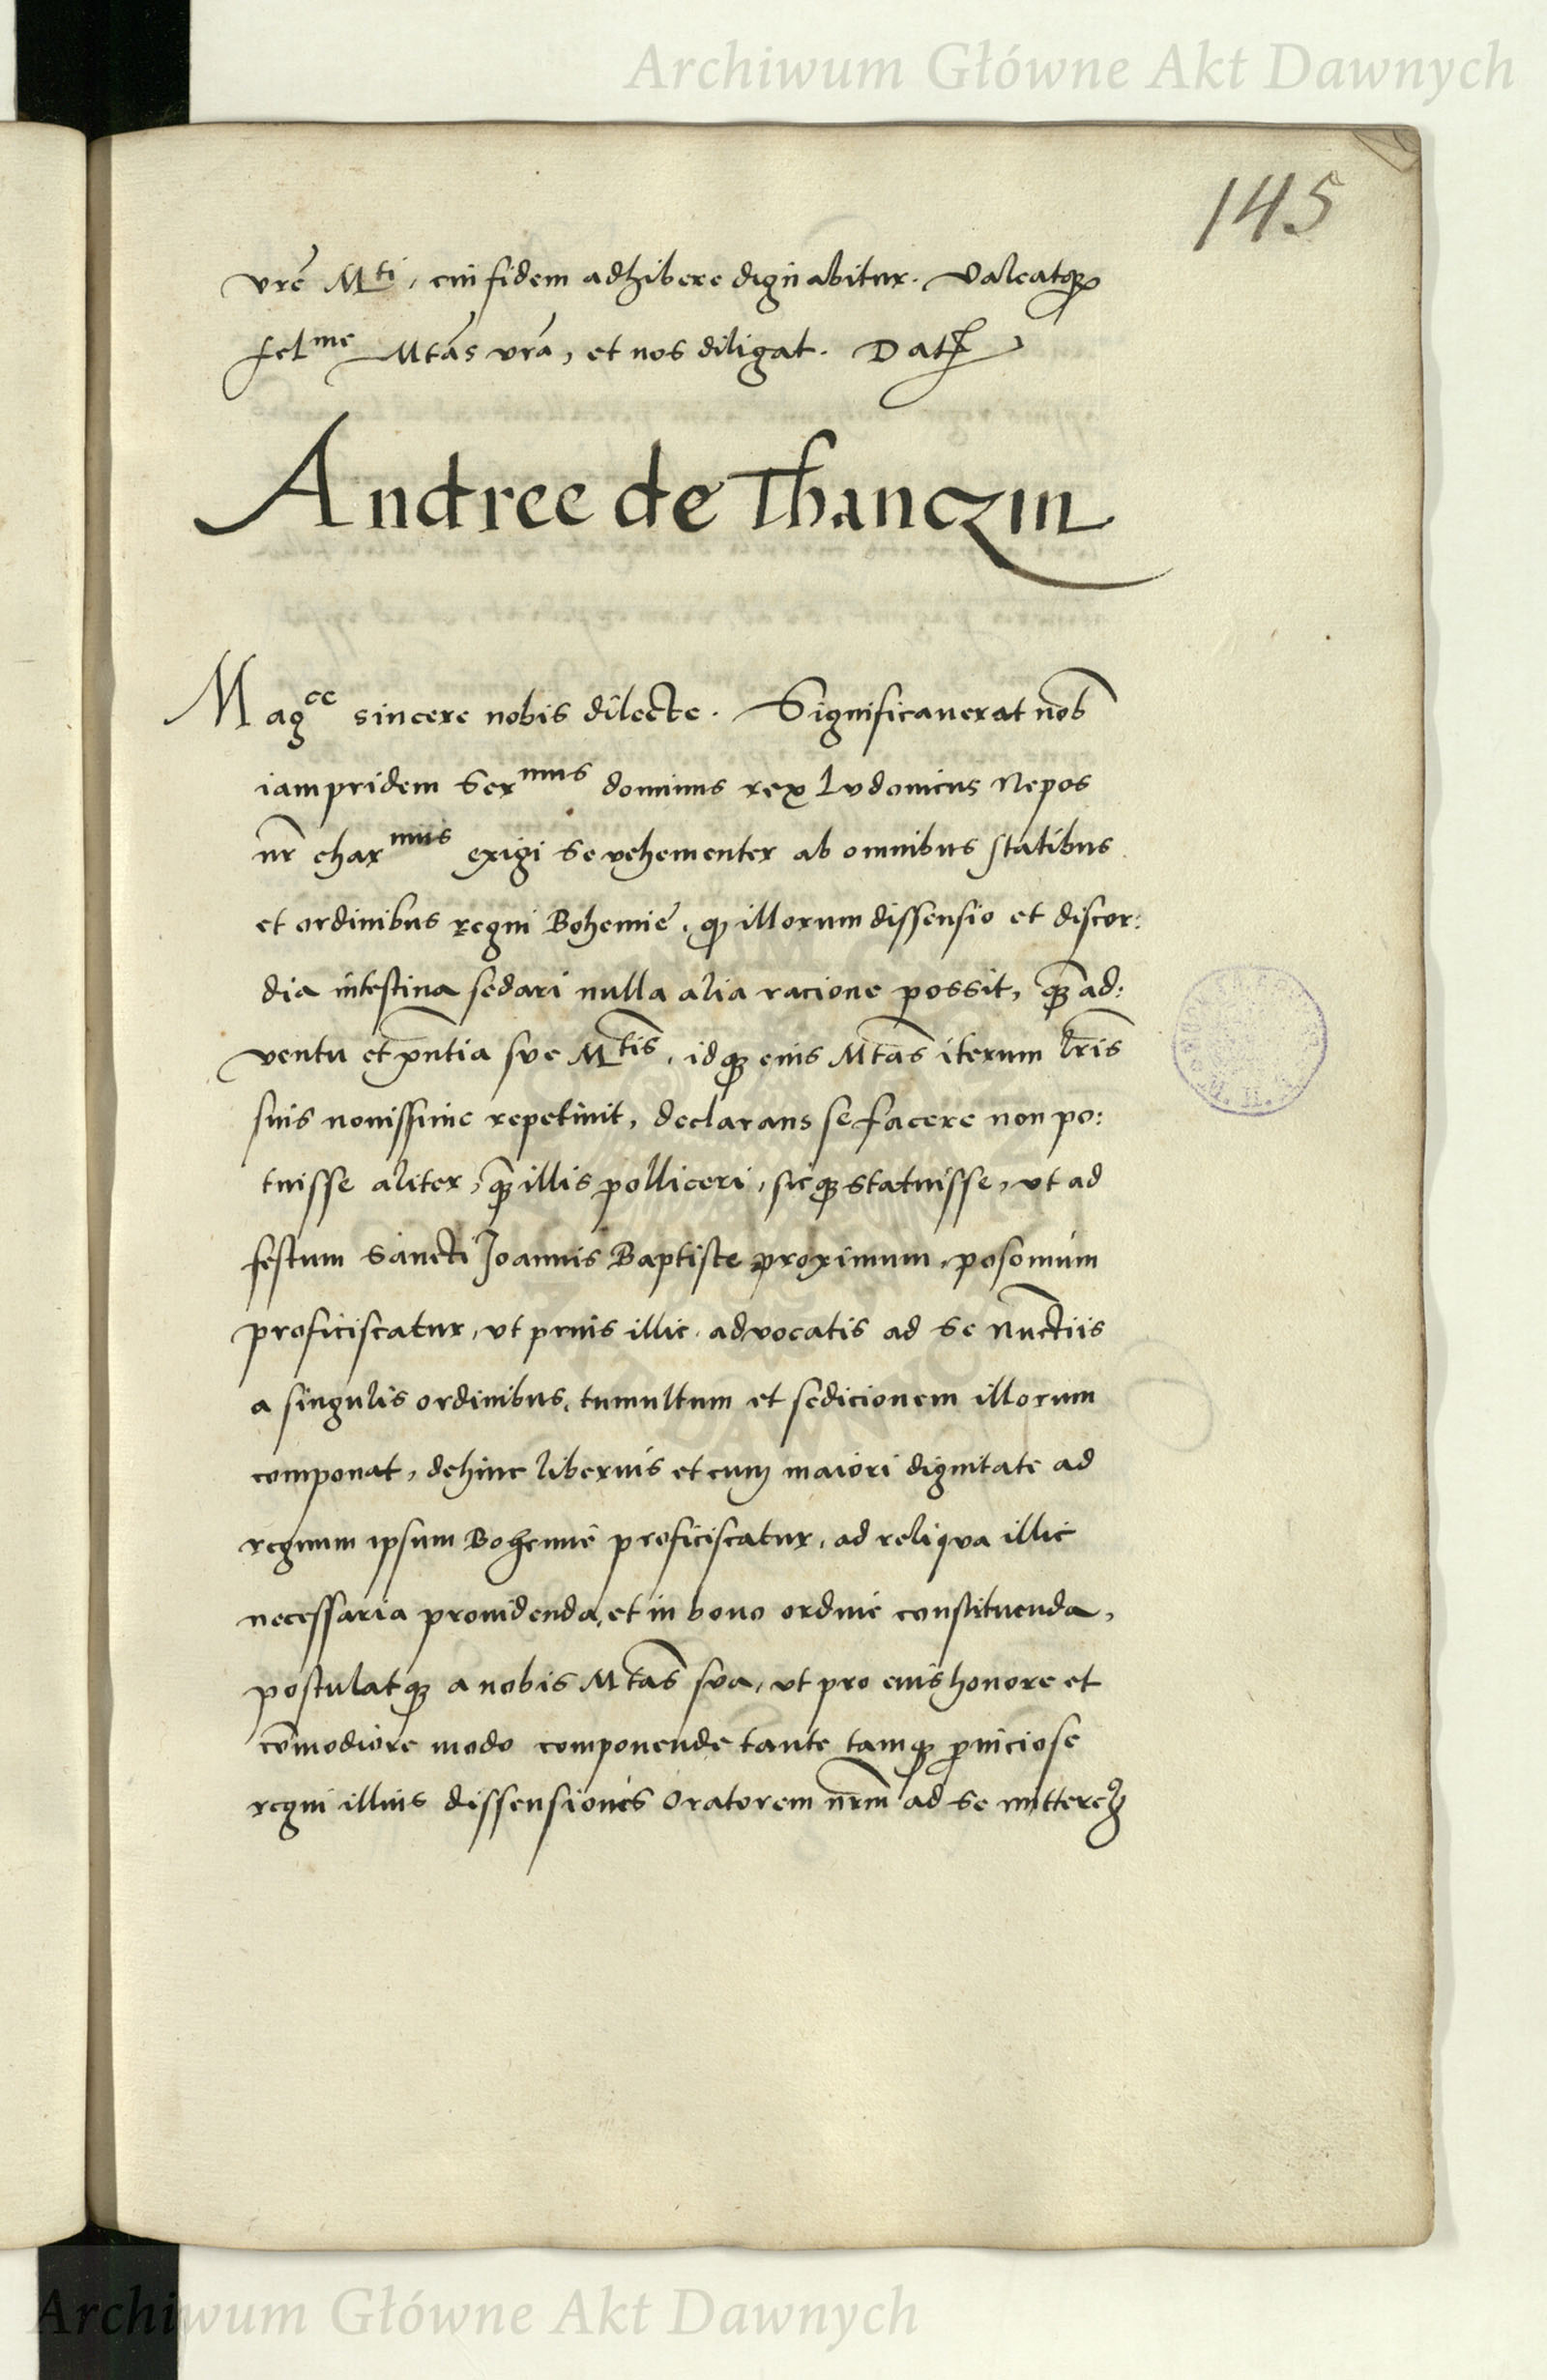 Archiwum Główne Akt Dawnych
145
vrẽ Mti, cui fidem adhibere dignabitur. Valeatqꝫ
felme Mtãs vrã, et nos diligat. Datꝭ
Andree de Thanczin
Magce sincere nobis dilecte. Significauerat nob̃
iampridem Sermus dominus rex Ludouicus Nepos
nr̃ charmus exigi se vehementer ab omnibus statibus
et ordinibus regni Bohemie, qꝫ illorum dissensio et discor:
dia intestina sedari nulla alia racione possit, qꝫ̃ ad:
ventu et pñtia sue Mtis, idqꝫ eius Mtãs iterum lr̃is
suis nouissime repetiuit, declarans se facere non po:
tuisse aliter, qꝫ̃ illis polliceri, sicqꝫ statuisse, vt ad
festum Sancti Joannis Baptiste proximum, posonium
proficiscatur, vt prius illic, advocatis ad se nũctiis
a singulis ordinibus, tumultum et sedicionem illorum
componat, dehinc liberius et cum maiori dignitate ad
regnum ipsum Bohemie proficiscatur, ad reliqva illic
necessaria prouidenda, et in bono ordine constituenda,
postulatqꝫ a nobis Mtãs sva, vt pro eius honore et
cõmodiore modo componende tante tamqꝫ ꝑniciose
regni illius dissensionis oratorem nr̃m ad se mitteremꝰ
Archiwum Główne Akt Dawnych